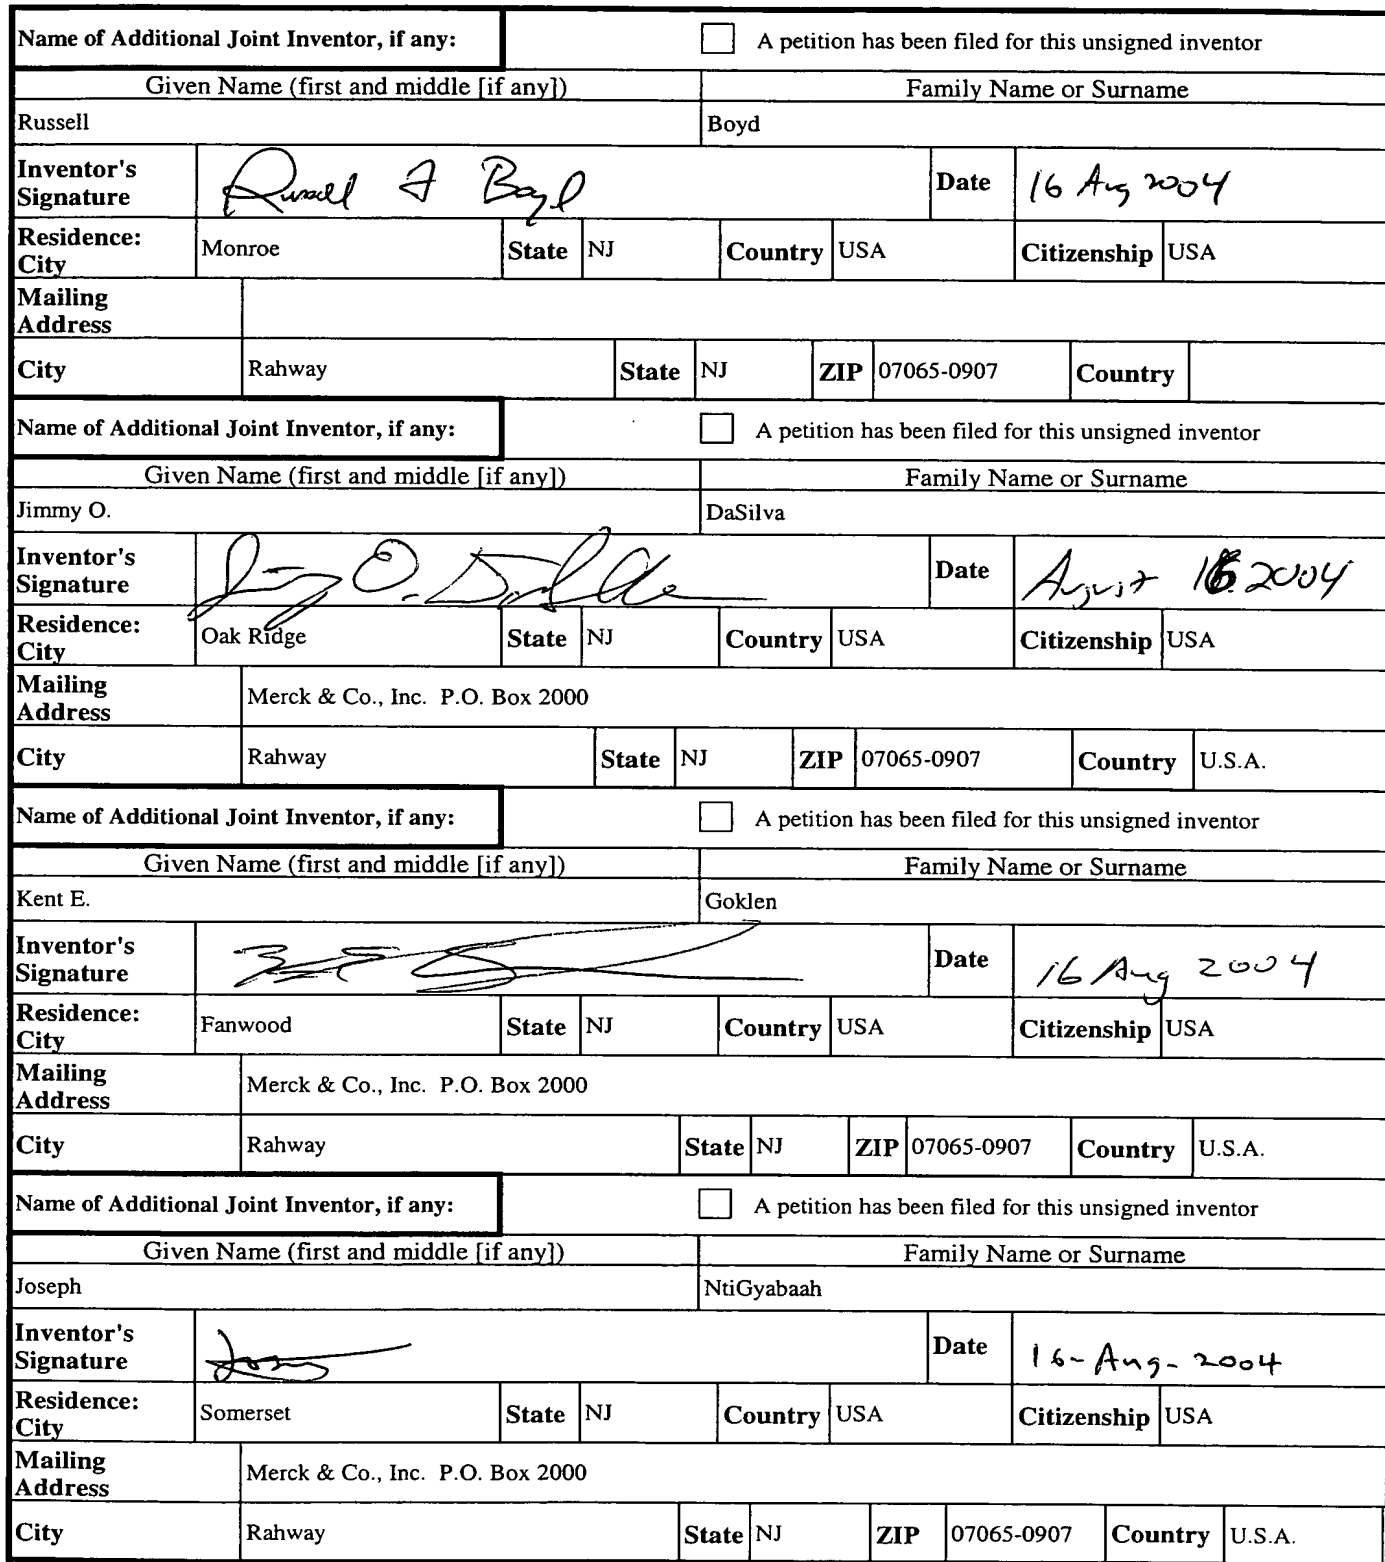 Name of Additional Joint Inventor, if any: A petition has been filed for this unsigned inventor
Given Name (first and middle [if any]) Family Name or Surname
Russell Boyd
Inventor's Signature Russell F Boyd Date 16 Aug 2004
Residence: City Monroe State NJ Country USA Citizenship USA
Mailing Address
City Rahway State NJ ZIP 07065-0907 Country
Name of Additional Joint Inventor, if any: A petition has been filed for this unsigned inventor
Given Name (first and middle [if any]) Family Name or Surname
Jimmy O. DaSilva
Inventor's Signature Date August 16 2004
Residence: City Oak Ridge State NJ Country USA Citizenship USA
Mailing Address Merck & Co., Inc. P.O. Box 2000
City Rahway State NJ ZIP 07065-0907 Country U.S.A.
Name of Additional Joint Inventor, if any: A petition has been filed for this unsigned inventor
Given Name (first and middle [if any]) Family Name or Surname
Kent E. Goklen
Inventor's Signature Date 16 Aug 2004
Residence: City Fanwood State NJ Country USA Citizenship USA
Mailing Address Merck & Co., Inc. P.O. Box 2000
City Rahway State NJ ZIP 07065-0907 Country U.S.A.
Name of Additional Joint Inventor, if any: A petition has been filed for this unsigned inventor
Given Name (first and middle [if any]) Family Name or Surname
Joseph NtiGyabaah
Inventor's Signature Date 16-Aug-2004
Residence: City Somerset State NJ Country USA Citizenship USA
Mailing Address Merck & Co., Inc. P.O. Box 2000
City Rahway State NJ ZIP 07065-0907 Country U.S.A.